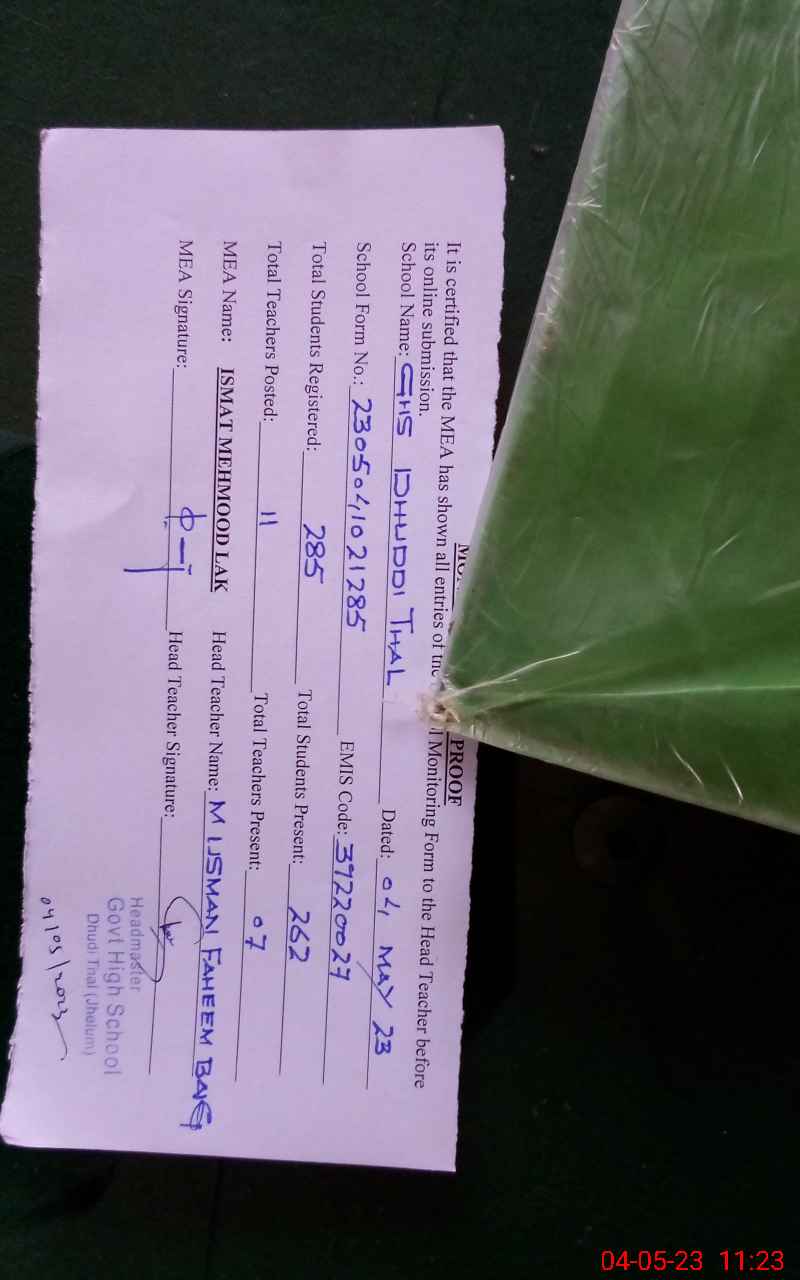 PROOF
It is certified that the MEA has shown all entries of the Monitoring Form to the Head Teacher before
its online submission.
School Name: GHS DHUDDI THAL Dated: 04 MAY 23
School Form No.: 2305041021285 EMIS Code: 37220027
Total Students Registered: 285 Total Students Present: 262
Total Teachers Posted: 11 Total Teachers Present: 07
MEA Name: ISMAT MEHMOOD LAK Head Teacher Name: M USMAN FAHEEM BAIG
MEA Signature: Head Teacher Signature:
Headmaster
Govt High School
Dhudi Thal (Jhelum)
04/05/2023
04-05-23 11:23